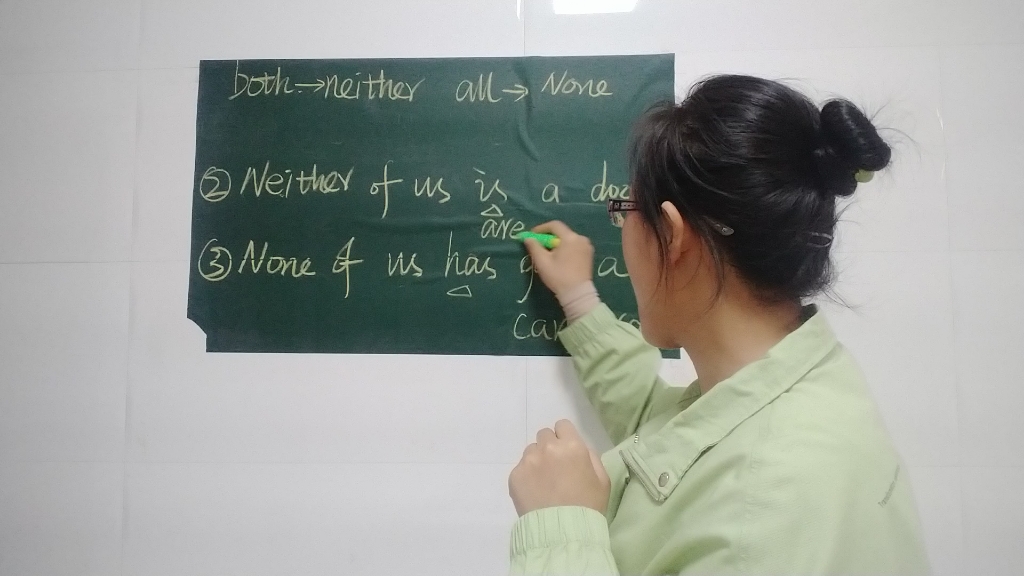 both→neither all→ None
② Neither of us is a
are
③ None of us has a